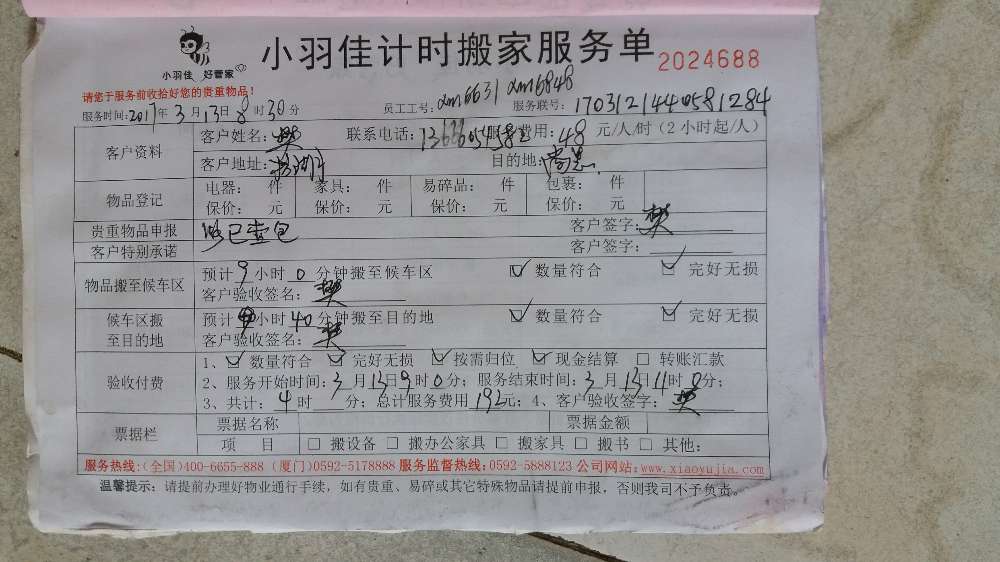 小羽佳计时搬家服务单 2024688
小羽佳 好管家
请您于服务前收拾好您的贵重物品!
服务时间:2017年3月13日8时30分 员工工号:xm6631 xm6848 服务联号:1703121440581284
客户资料
客户姓名:樊 联系电话: 服务费用:48元/人/时(2小时起/人)
客户地址: 目的地:
物品登记
电器: 件 家具: 件 易碎品: 件 包裹: 件
保价: 元 保价: 元 保价: 元 保价: 元
贵重物品申报 已查包 客户签字:樊
客户特别承诺 客户签字:
物品搬至候车区
预计9小时0分钟搬至候车区 数量符合 完好无损
客户验收签名:樊
候车区搬至目的地
预计小时40分钟搬至目的地 数量符合 完好无损
客户验收签名:樊
验收付费
1、数量符合 完好无损 按需归位 现金结算 转账汇款
2、服务开始时间:3月13日9时0分;服务结束时间:3月13日11时0分;
3、共计:4时 分;总计服务费用192元;4、客户验收签字:樊
票据栏
票据名称 票据金额
项 目 搬设备 搬办公家具 搬家具 搬书 其他:
服务热线:(全国)400-6655-888 (厦门)0592-5178888 服务监督热线:0592-5888123 公司网站:www.xiaoyujia.com
温馨提示:请提前办理好物业通行手续,如有贵重、易碎或其它特殊物品请提前申报,否则我司不予负责。